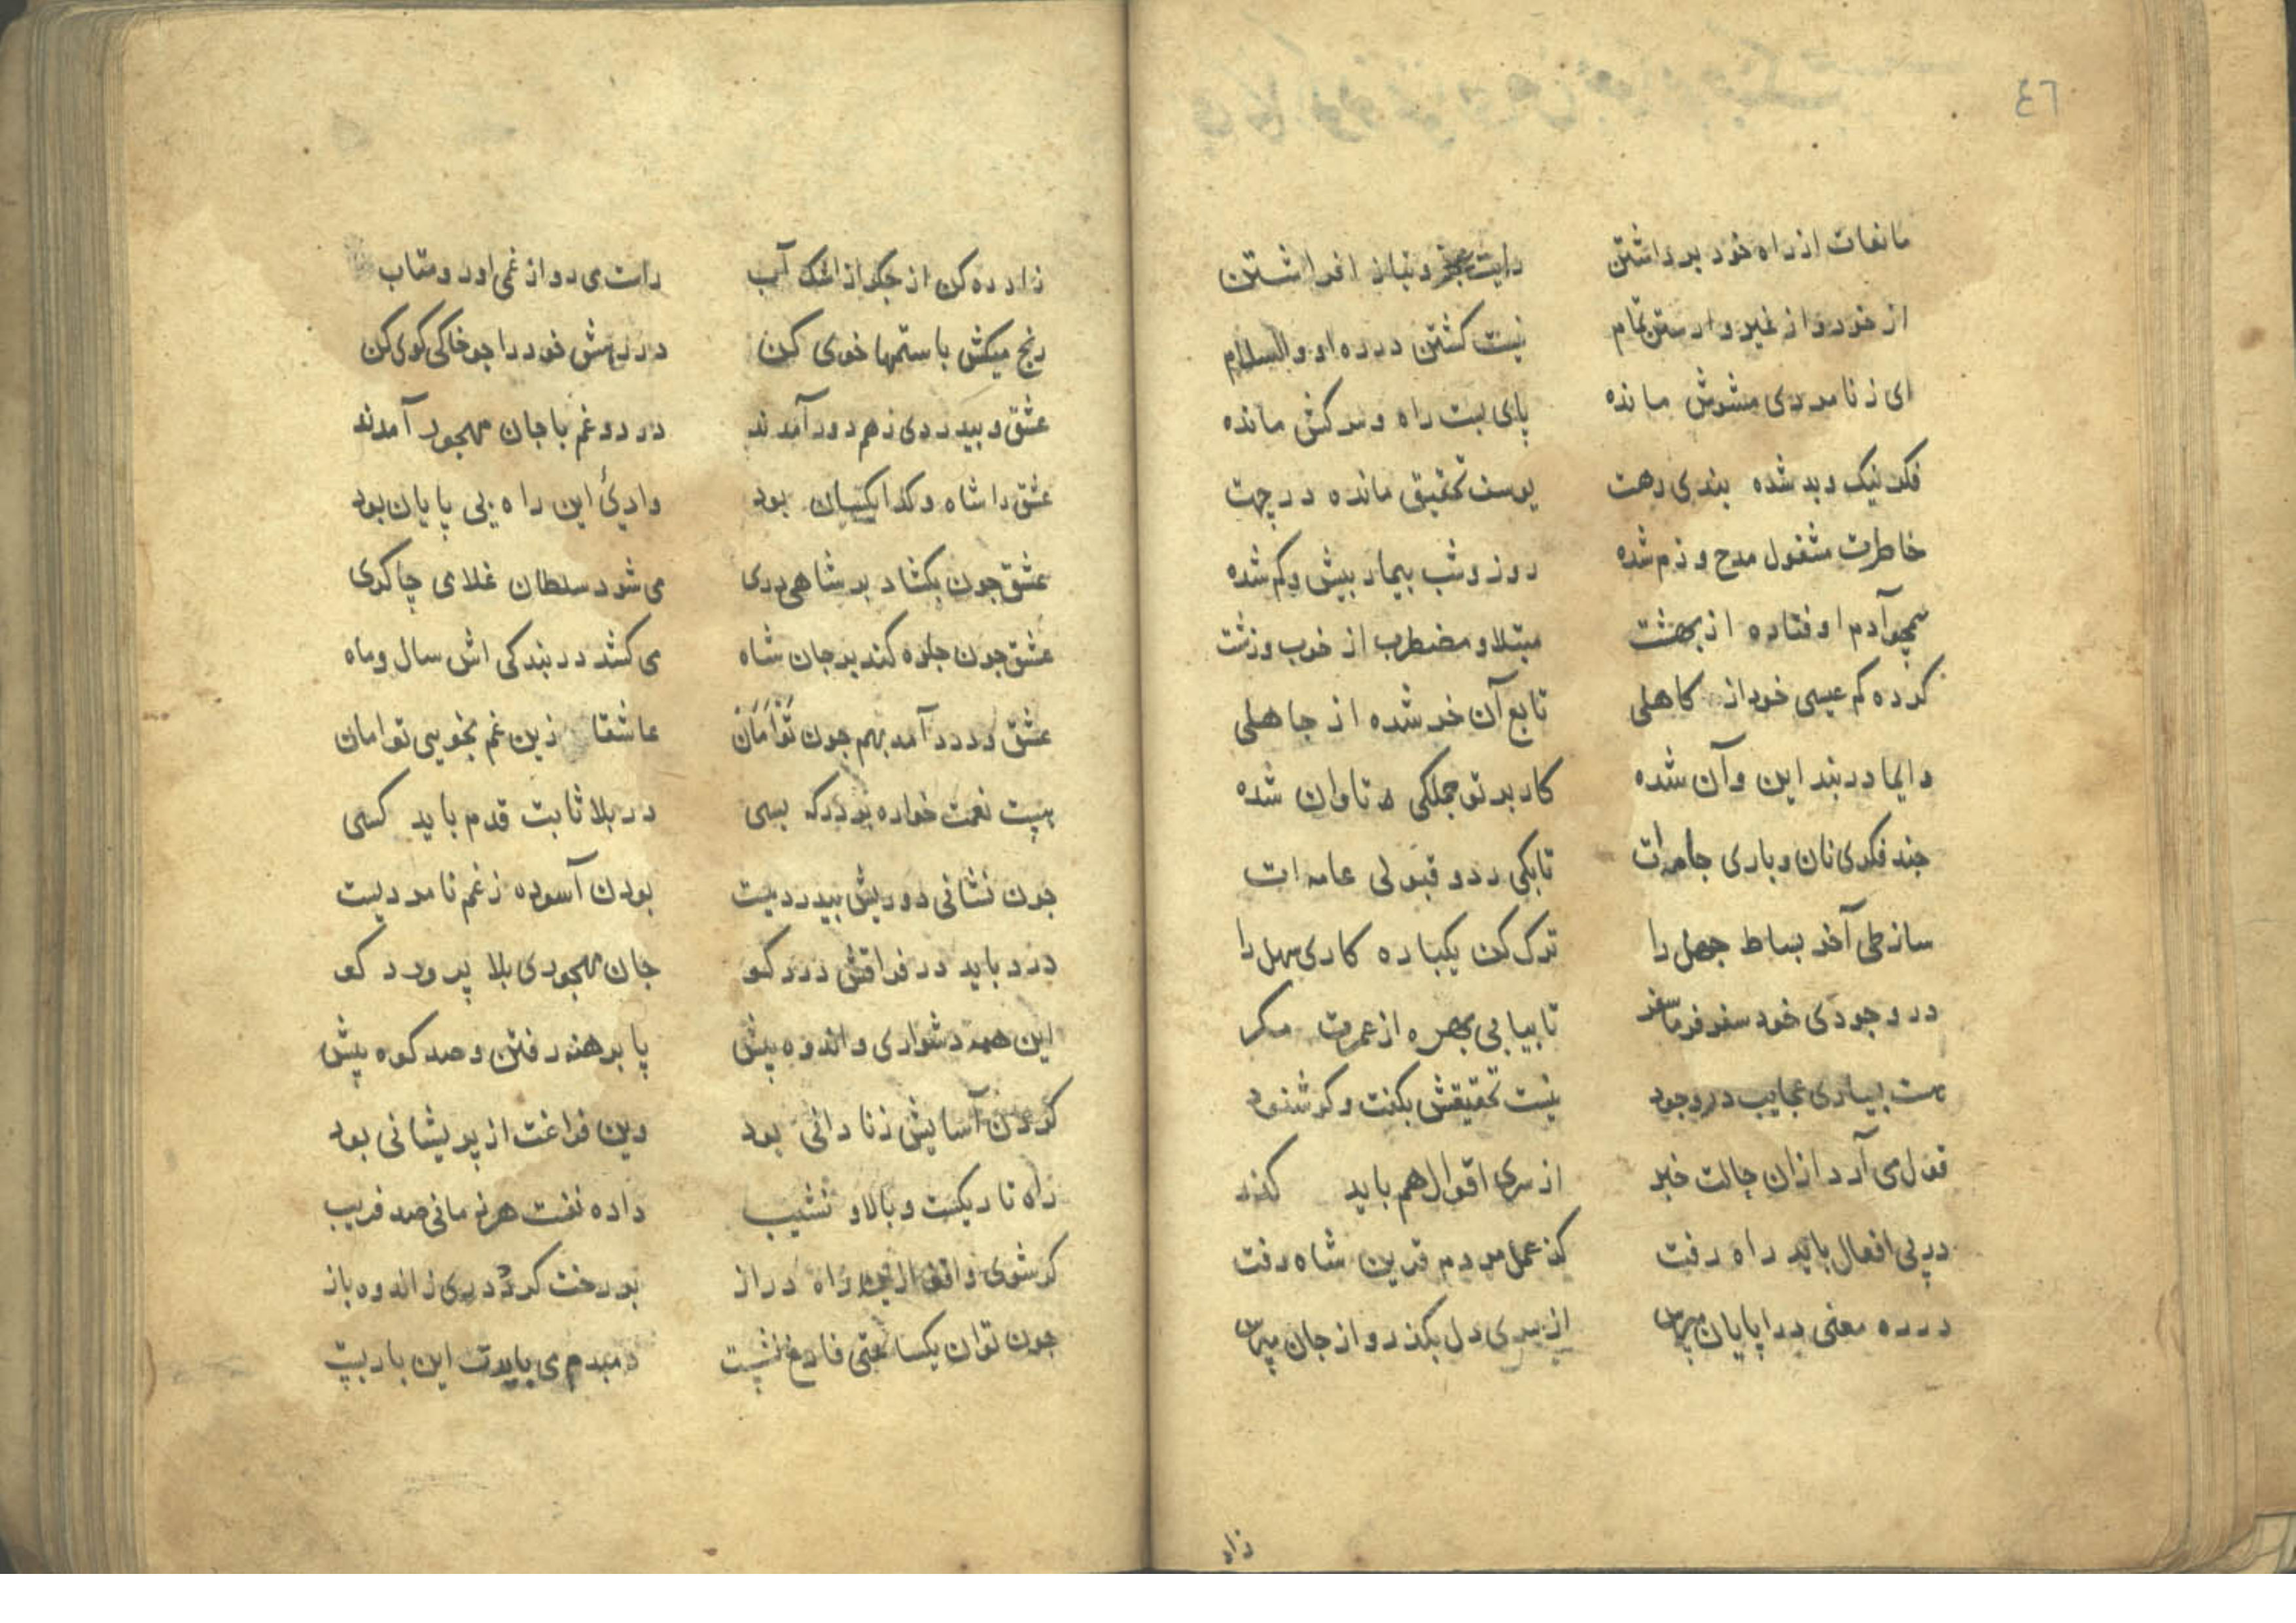 ٤٦
مانعات از راه خود برداشتن رایت عجز و نیاز افراشتن
از خود و از غیر وارستن تمام نیست کشتن در ره او والسلام
ای ز نامردی مشوش مانده پای بست راه و سرکش مانده
فکر نیک و بد شده بندی رهت یوسف تحقیق مانده در چهت
خاطرت مشغول مدح و ذم شده روز و شب بیمار بیش و کم شده
همچو آدم اوفتاده از بهشت مبتلا و مضطرب از خوب و زشت
کرده کم عیسی خود از کاهلی تابع آن خر شده از جاهلی
دایما در بند این و آن شده کار بر تو جملکی تاوان شده
جند فکری نان و باری جامه‌ات تابکی رد و قبولی عامه‌ات
ساز طی آخر بساط جهل را ترک کن یکباره کاری سهل را
در وجودی خود سفر فرما سفر تا بیابی بهره از عمرت مکر
هست بسیاری عجایب در وجود نیست تحقیقش بکفت و کو شنود
قول می آرد از ان حالت خبر از سری اقوال هم باید کذر
در پی افعال باید راه رفت کز عمل مردم قرین شاه رفت
در ره معنی در ا پایان مپرس از سری دل بکذر و از جان مپرس
زاد
زاد ره کن از جکر از اشک آب راست می رو از غمی او رو متاب
رنج میکش با ستمها خوی کن در رهش خود را جو خاکی کوی کن
عشق و بیدردی ز هم دور آمدند درد و غم با جان مهجور آمدند
عشق را شاه و کدا یکسان بود وادئ این راه بی پایان بود
عشق جون بکشاد بر شاهی دری می شود سلطان غلامی چاکری
عشق جون جلوه کند بر جان شاه می کشد در بندکی اش سال و ماه
عشق و درد آمد بهم جون توامان عاشقا زین غم بخویی تو امان
هست نعمت خواره بر درکه بسی در بلا ثابت قدم باید کسی
جون نشانی دوریش بیدردیست بودن آسوده ز غم نامردیست
درد باید در فراقش درد کو جان مهجوری بلا پرورد کو
این همه دشواری و اندوه پیش پا برهنه رفتن و صد کوه پیش
کردن آسایش ز نادانی بود وین فراغت از پریشانی بود
راه تاریکست و بالا و نشیب داده نفست هر زمانی صد فریب
کر شوی واقف ازین راه دراز بر رخت کردد دری ز اندوه باز
جون توان یکساعتی فارغ نشست دمبدم می بایدت این بار بست